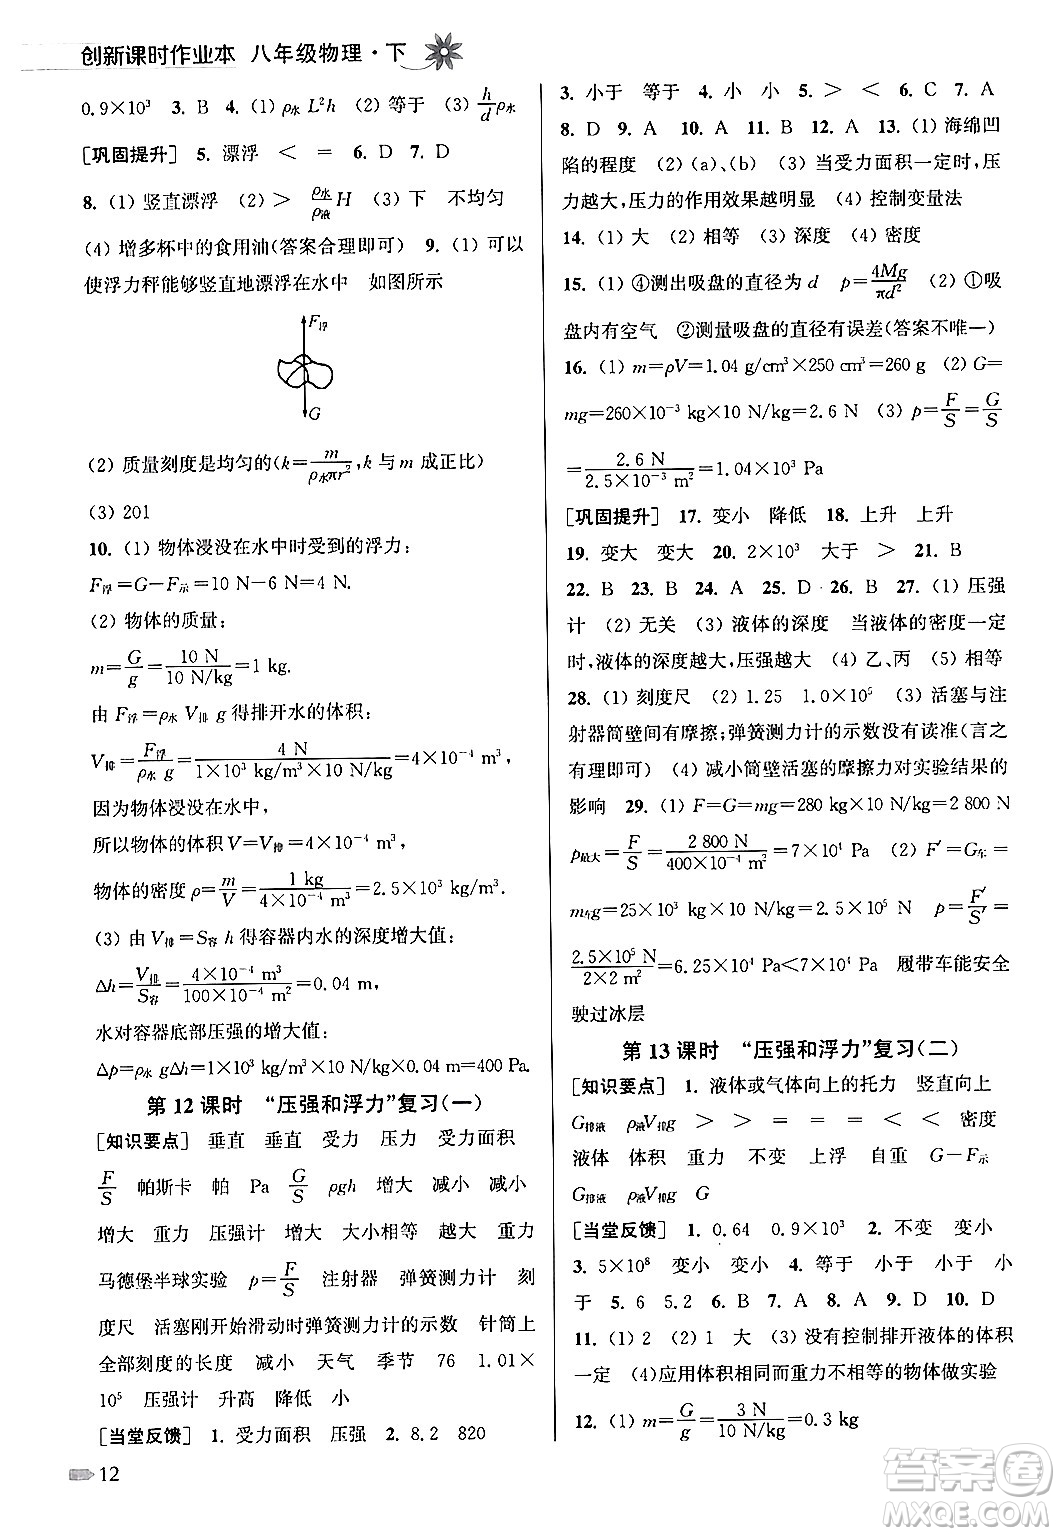 创新课时作业本 八年级物理·下
0.9×10³ 3. B 4. (1) ρ水 L²h (2) 等于 (3) h/d ρ水
[巩固提升] 5. 漂浮 < = 6. D 7. D
8. (1) 竖直漂浮 (2) > ρ水/ρ液 H (3) 下 不均匀
(4) 增多杯中的食用油(答案合理即可) 9. (1) 可以
使浮力秤能够竖直地漂浮在水中 如图所示
F浮
G
(2) 质量刻度是均匀的(k=m/ρ水πr²,k 与 m 成正比)
(3) 201
10. (1) 物体浸没在水中时受到的浮力:
F浮=G−F示=10 N−6 N=4 N.
(2) 物体的质量:
m=G/g=10 N/10 N/kg=1 kg.
由 F浮=ρ水 V排 g 得排开水的体积:
V排=F浮/ρ水 g=4 N/1×10³ kg/m³×10 N/kg=4×10⁻⁴ m³
因为物体浸没在水中,
所以物体的体积 V=V排=4×10⁻⁴ m³,
物体的密度 ρ=m/V=1 kg/4×10⁻⁴ m³=2.5×10³ kg/m³.
(3) 由 V排=S容 h 得容器内水的深度增大值:
Δh=V排/S容=4×10⁻⁴ m³/100×10⁻⁴ m²=0.04 m,
水对容器底部压强的增大值:
Δp=ρ水 gΔh=1×10³ kg/m³×10 N/kg×0.04 m=400 Pa.
第 12 课时 “压强和浮力”复习(一)
[知识要点] 垂直 垂直 受力 压力 受力面积
F/S 帕斯卡 帕 Pa G/S ρgh 增大 减小 减小
增大 重力 压强计 增大 大小相等 越大 重力
马德堡半球实验 p=F/S 注射器 弹簧测力计 刻
度尺 活塞刚开始滑动时弹簧测力计的示数 针筒上
全部刻度的长度 减小 天气 季节 76 1.01×
10⁵ 压强计 升高 降低 小
[当堂反馈] 1. 受力面积 压强 2. 8.2 820
12
3. 小于 等于 4. 小 小 5. > < 6. C 7. A
8. D 9. A 10. A 11. B 12. A 13. (1) 海绵凹
陷的程度 (2) (a)、(b) (3) 当受力面积一定时,压
力越大,压力的作用效果越明显 (4) 控制变量法
14. (1) 大 (2) 相等 (3) 深度 (4) 密度
15. (1) ④测出吸盘的直径为 d p=4Mg/πd² (2) ①吸
盘内有空气 ②测量吸盘的直径有误差(答案不唯一)
16. (1) m=ρV=1.04 g/cm³×250 cm³=260 g (2) G=
mg=260×10⁻³ kg×10 N/kg=2.6 N (3) p=F/S=G/S
=2.6 N/2.5×10⁻³ m²=1.04×10³ Pa
[巩固提升] 17. 变小 降低 18. 上升 上升
19. 变大 变大 20. 2×10³ 大于 > 21. B
22. B 23. B 24. A 25. D 26. B 27. (1) 压强
计 (2) 无关 (3) 液体的深度 当液体的密度一定
时,液体的深度越大,压强越大 (4) 乙、丙 (5) 相等
28. (1) 刻度尺 (2) 1.25 1.0×10⁵ (3) 活塞与注
射器筒壁间有摩擦;弹簧测力计的示数没有读准(言之
有理即可) (4) 减小筒壁活塞的摩擦力对实验结果的
影响 29. (1) F=G=mg=280 kg×10 N/kg=2 800 N
p最大=F/S=2 800 N/400×10⁻⁴ m²=7×10⁴ Pa (2) F′=G车=
m车g=25×10³ kg×10 N/kg=2.5×10⁵ N p=F′/S′=
2.5×10⁵ N/2×2 m²=6.25×10⁴ Pa<7×10⁴ Pa 履带车能安全
驶过冰层
第 13 课时 “压强和浮力”复习(二)
[知识要点] 1. 液体或气体向上的托力 竖直向上
G排液 ρ液V排g > > = = = < < 密度
液体 体积 重力 不变 上浮 自重 G−F示
G排液 ρ液V排g G
[当堂反馈] 1. 0.64 0.9×10³ 2. 不变 变小
3. 5×10⁸ 变小 变小 4. 等于 小于 小于 大
于 5. 6 5.2 6. B 7. A 8. A 9. D 10. D
11. (1) 2 (2) 1 大 (3) 没有控制排开液体的体积
一定 (4) 应用体积相同而重力不相等的物体做实验
12. (1) m=G/g=3 N/10 N/kg=0.3 kg
答案圈
MXQE.COM